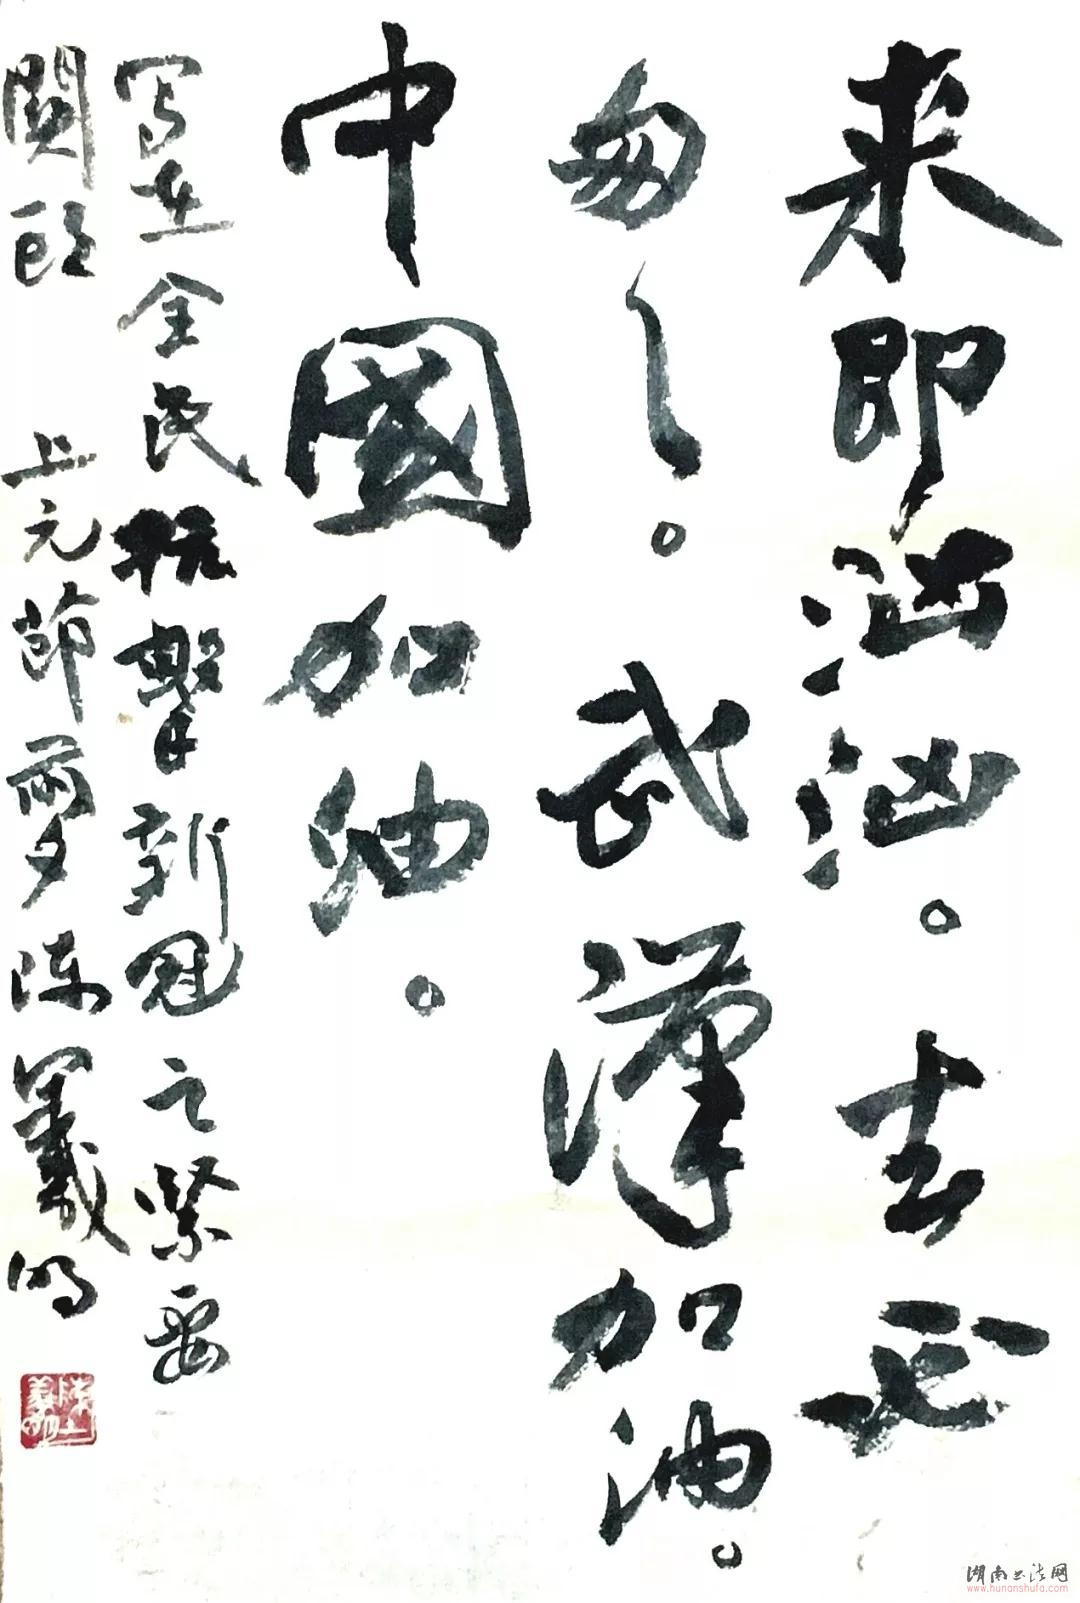 来即汹汹。去必
匆々。武漢加油。
中國加油。
写在全民抗擊新冠之緊要
關頭 上元節前夕陈羲明
湖南书法网
www.hunanshufa.com